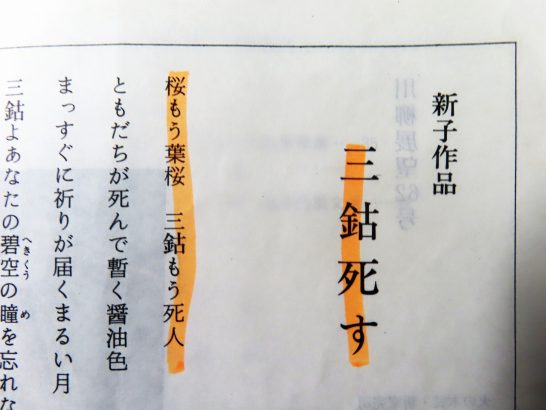 新子作品
三鈷死す
桜もう葉桜　三鈷もう死人
ともだちが死んで暫く醤油色
まっすぐに祈りが届くまるい月
三鈷よあなたの碧空の瞳を忘れな
へきくう
め
川柳展望62号